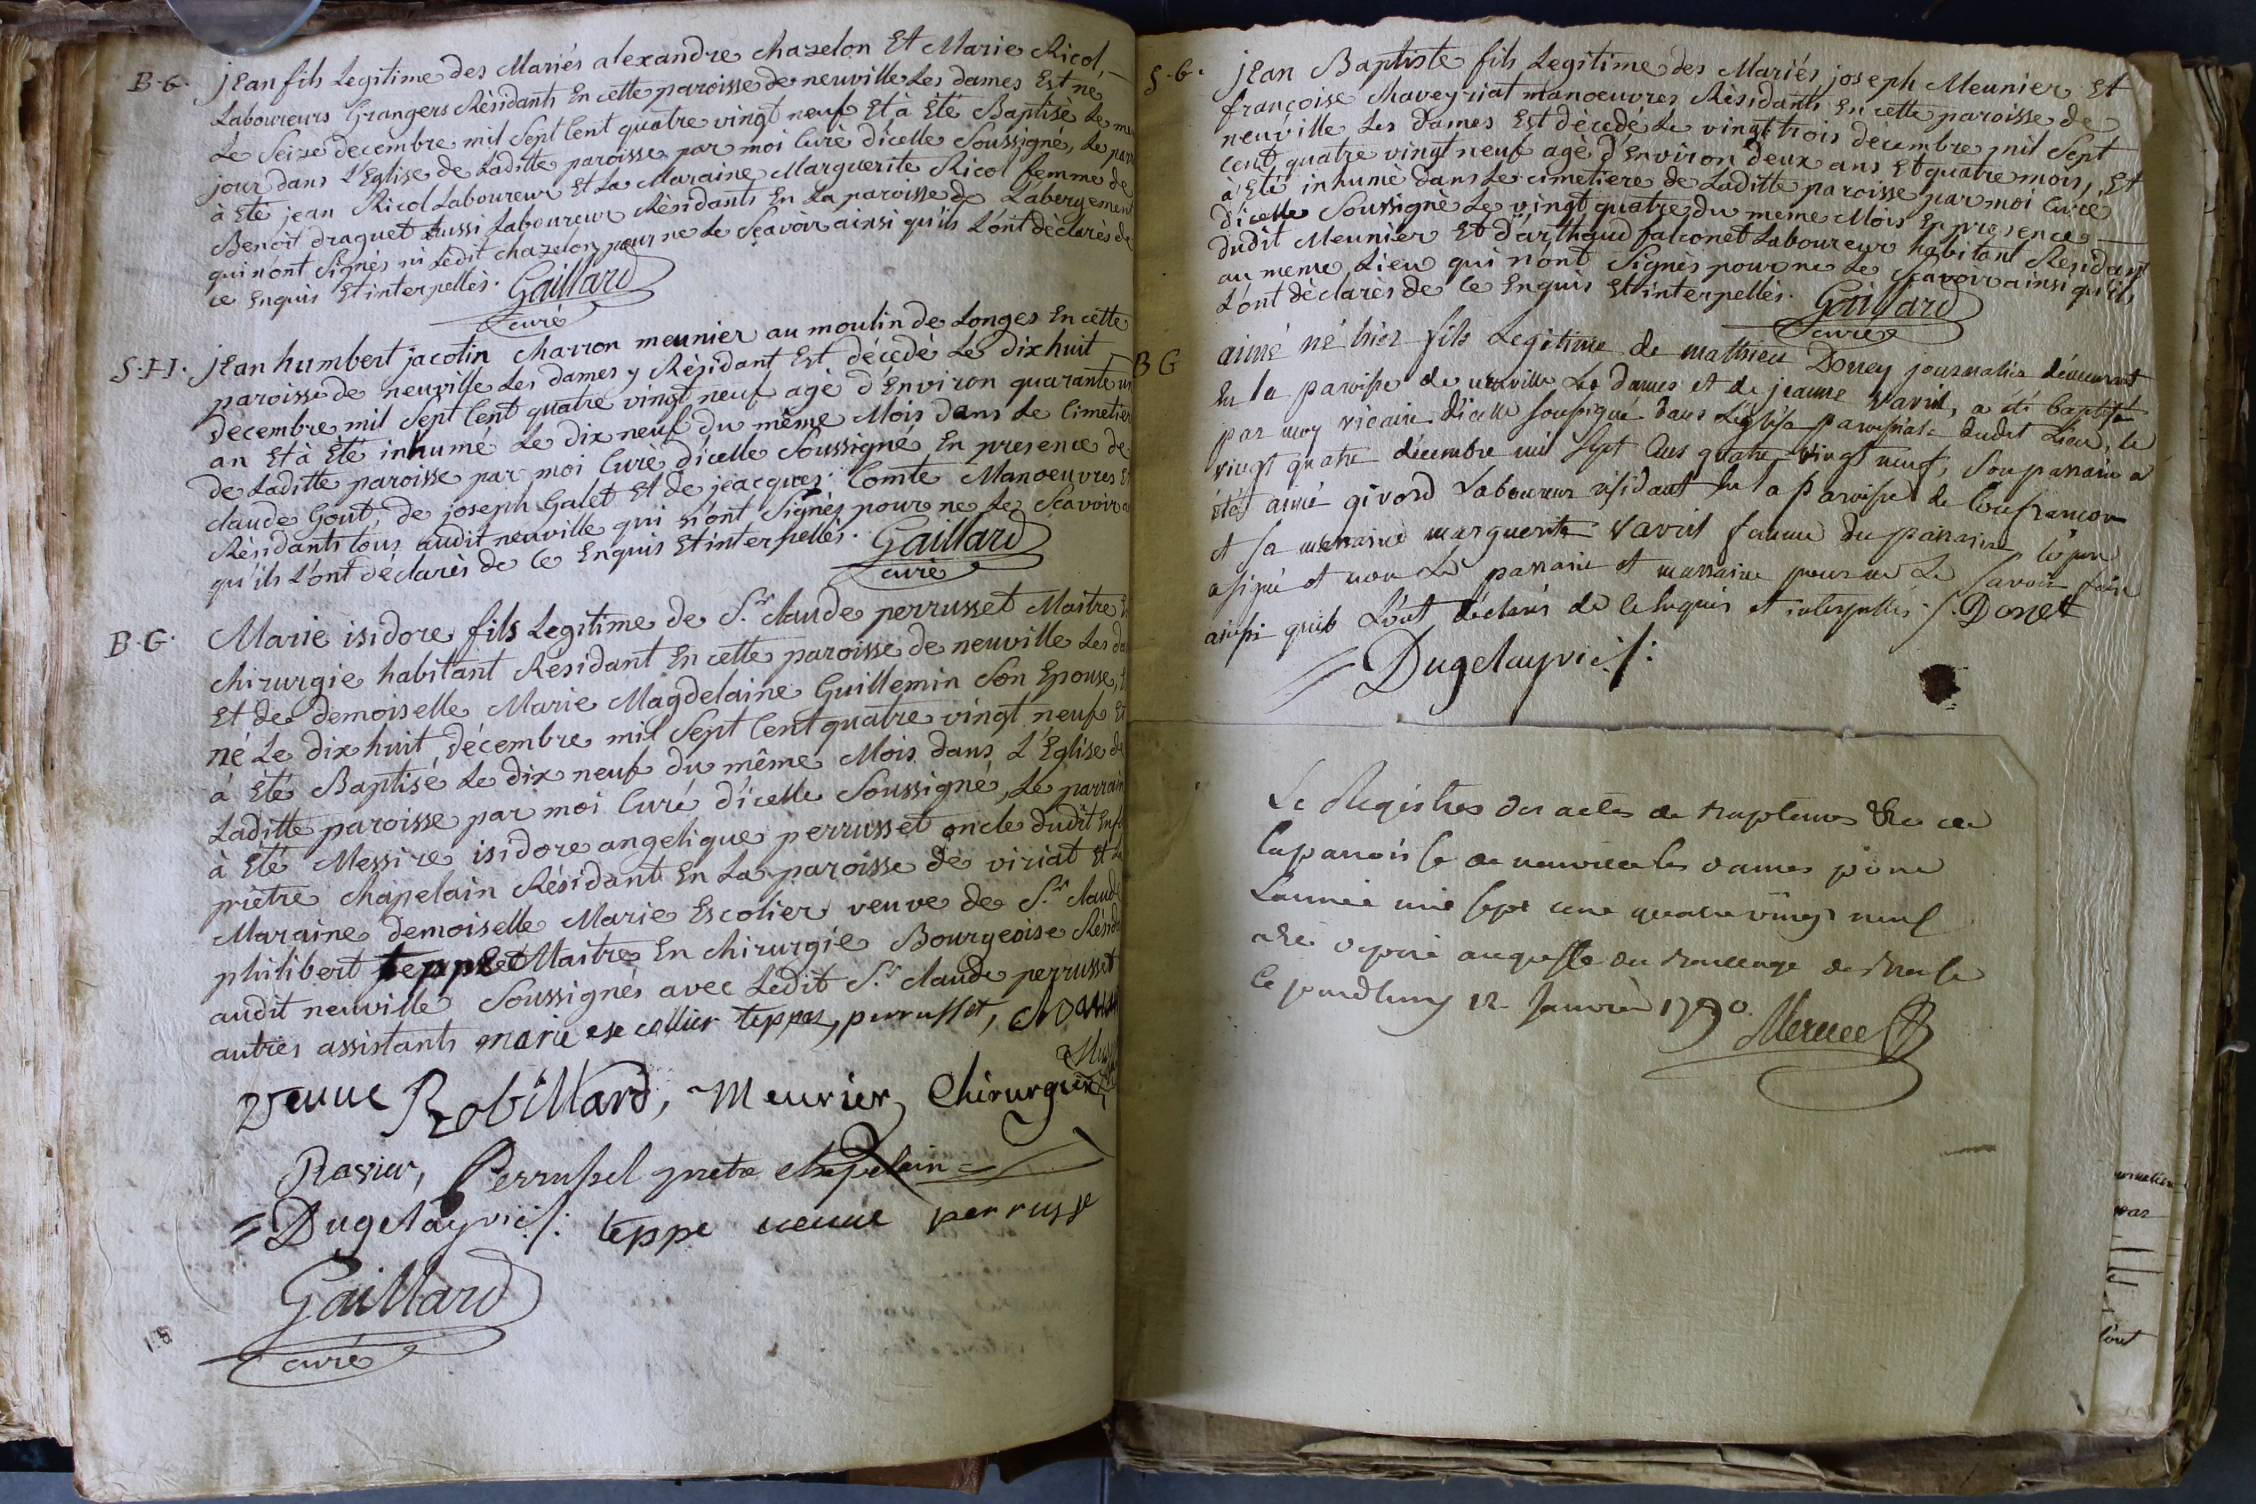 B.G. jean fils Legitime des Mariés alexandre chazelon Et Marie Ricol,
Laboureurs Grangers Résidants En cette paroisse de neuville Les dames Est né
Le Seize decembre mil Sept Cent quatre vingt neuf Et à Eté Baptisé Le me
jour dans L'Eglise de Laditte paroisse par moi Curé d'icelle Soussigné, Le parr
à Eté jean Ricol Laboureur Et La Maraine Marguerite Ricol femme de
Benoit draguet aussi Laboureur Résidants En La paroisse de Labergement
qui n'ont Signés ni Ledit chazelon pour ne Le Sçavoir ainsi qu'ils L'ont déclarés de
ce Enquis Et interpellés. Gaillard
curé
S.H. jean humbert jacotin charron meunier au moulin de Longes En cette
paroisse de neuville Les dames y Résidant Est décedé Le dix huit
decembre mil Sept Cent quatre vingt neuf agé d'Environ quarante un
an Et à Eté inhumé Le dix neuf du même Mois dans Le Cimetier
de Laditte paroisse par moi Curé d'icelle Soussigné En presence de
claude Gout, de joseph Galet Et de jeacques Comte Manoeuvres
Résidants tous audit neuville qui n'ont Signés pour ne Le Scavoir
qu'ils L'ont déclarés de Ce Enquis Et interpellés. Gaillard
curé
B.G. Marie isidore fils Legitime de S.r claude perrusset Maitre
chirurgie habitant Résidant En cette paroisse de neuville Les da
Et de demoiselle Marie Magdelaine Guillemin Son Epouse,
né Le dix huit Décembre mil Sept Cent quatre vingt neuf Et
à Eté Baptisé Le dix neuf du même Mois dans L'Eglise de
Laditte paroisse par moi Curé d'icelle Soussigné, Le parrain
à Eté Messire isidore angelique perrusset oncle dudit Enf
prêtre chapelain Résidant En La paroisse de viriat Et
Maraine demoiselle Marie Escolier veuve de S.r claude
philibert teppe Maitre En chirurgie Bourgeoise Résid
audit neuville Soussignés avec Ledit S.r claude perrusset
autres assistants marie ese collier teppe, perrusset,
veuve Robillard, Meurier, Chirurgien
Ravier, Perrusset pretre chapelain
Dugelay vic/: teppe veuve perrusse
Gaillard
curé
S.G. jean Baptiste fils Legitime des Mariés joseph Meunier Et
françoise chaveyriat manoeuvres Résidants En cette paroisse de
neuville Les Dames Est décedé Le vingt trois decembre mil Sept
cent quatre vingt neuf agé d'Environ deux ans Et quatre mois, Et
à Eté inhumé dans Le cimetiere de Laditte paroisse par moi Curé
d'icelle Soussigné Le vingt quatre du meme Mois En presence
dudit Meunier Et d'arthaud falconet Laboureur habitant Résidant
au meme Lieu qui n'ont Signés pour ne Le Scavoir ainsi qu'ils
L'ont déclarés de Ce Enquis Et interpellés. Gaillard
curé
B G aimé né hier fils Legitime de mathieu Doney journalier demeurant
En la paroisse de neuville Les dames et de jeanne Vavril, a été baptisé
par moy vicaire d'icelle soussigné dans L'église paroissiale dudit Lieu, le
vingt quatre décembre mil Sept Cens quatre vingt neuf, Son parrain a
été aimé givord Laboureur résidant En la paroisse de Confrançon
et sa marraine marguerite Vavril femme du parrain le pere
a signé et non Le parrain et marraine pour ne Le savoir faire
ainsi qu'ils L'ont déclarés de ce Enquis et interpellés /. Donet
Dugelay vic/:
Le Registres des actes de Baptemes &c de
la parroisse de neuville les dames pour
Lannée mil sept cent quatre vingt neuf
a été déposé au greffe du Bailliage de Bresse
ce jourdhuy 12 Janvier 1790.